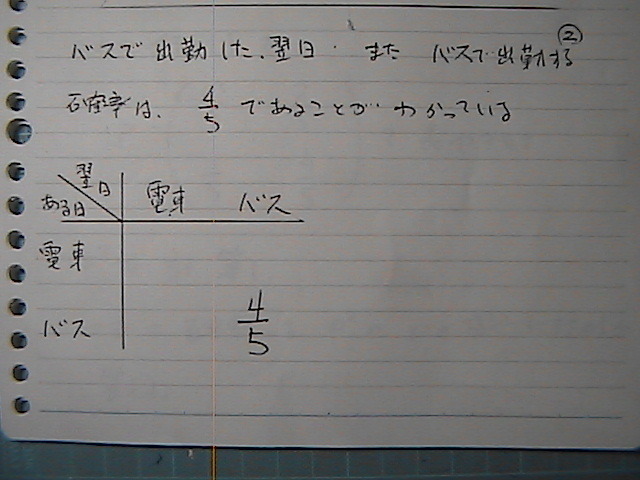 ②
バスで出勤した、翌日、また バスで出勤する
確率は、4/5 であることが わかっている
翌日
ある日 電車 バス
電車
バス 4/5